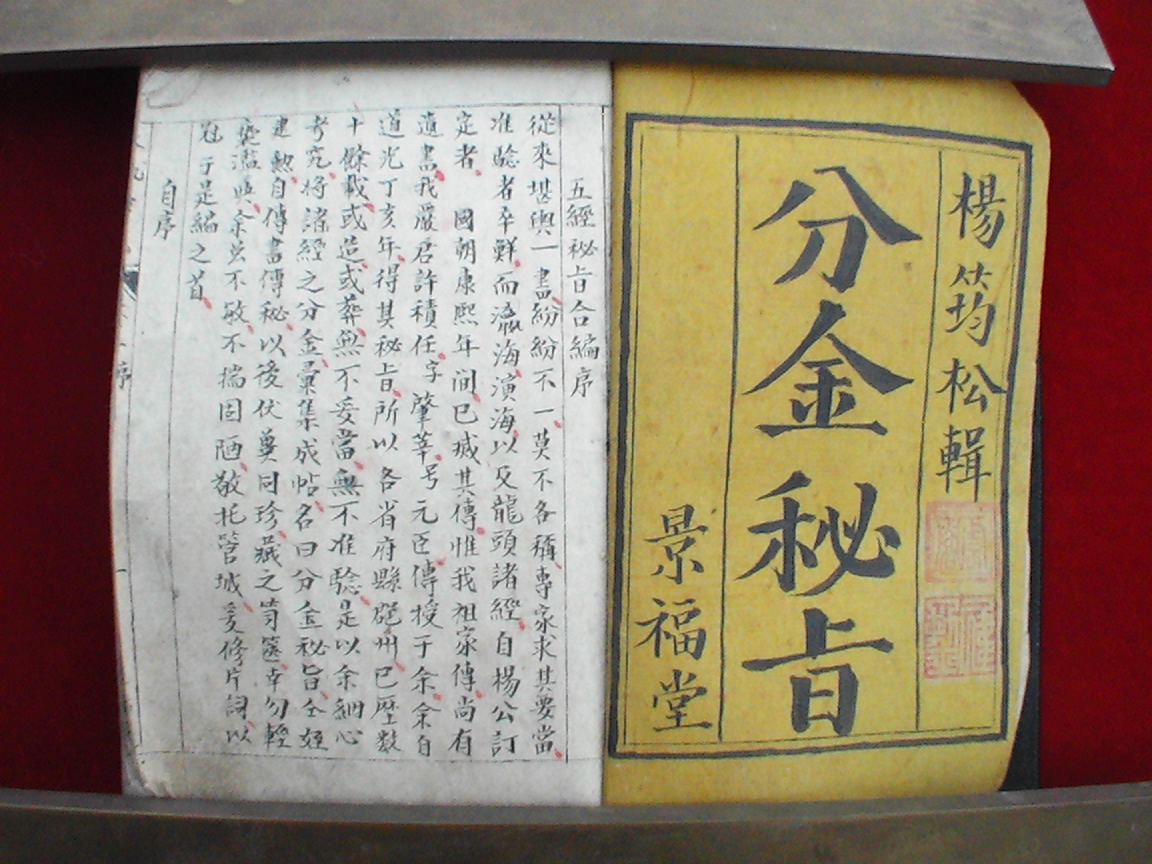 楊筠松輯
分金秘旨
景福堂
五經秘旨合編序
從來堪輿一書紛紛不一莫不各稱專家求其要當
准驗者卒鮮而瀛海演海以及龍頭諸經自楊公訂
定者國朝康熙年间已贓其傳惟我祖家傳尚有
遺書我嚴君許積任字肇莘号元臣傳授于余余自
道光丁亥年得其秘旨所以各省府縣廳州已歷数
十餘載或造或葬無不妥當無不准驗是以余細心
考究将諸經之分金彙集成帖名曰分金秘旨全經
建勲自傳書傳秘以後伏冀同珍藏之笥篋幸勿輕
褻濫與余虽不敏不揣固陋敬托管城爰修片詞以
冠于是編之首
自序
序